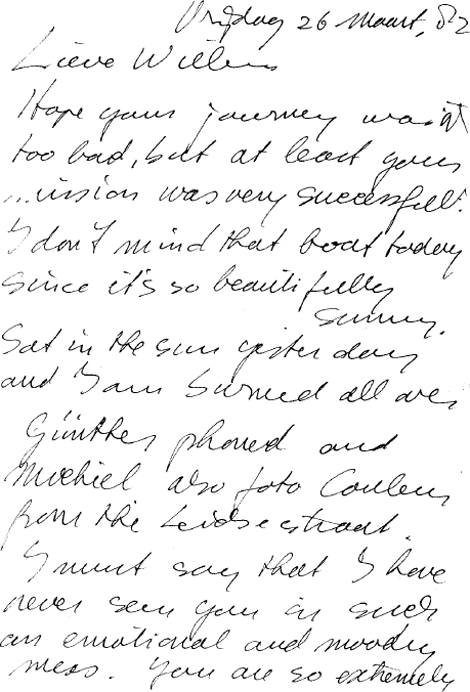 Vrijdag 26 Maart, 82
Lieve Willem
Hope your journey wasn't
too bad, but at least your
...ission was very successfull!
I don't mind that boat today
since it's so beautifully
sunny.
Sat in the sun yesterday
and I am burned all over
Günther phoned and
Michiel also foto Coulens
from the Leidsestraat.
I must say that I have
never seen you in such
an emotional and moody
mess. You are so extremely